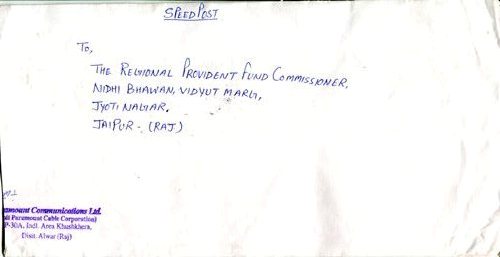 SPEED POST
To,
THE REGIONAL PROVIDENT FUND COMMISSIONER,
NIDHI BHAWAN, VIDYUT MARG,
JYOTI NAGAR,
JAIPUR. (RAJ)
amount Communications Ltd.
Paramount Cable Corporation)
P-30A, Indl. Area Khushkhera,
Distt. Alwar (Raj)